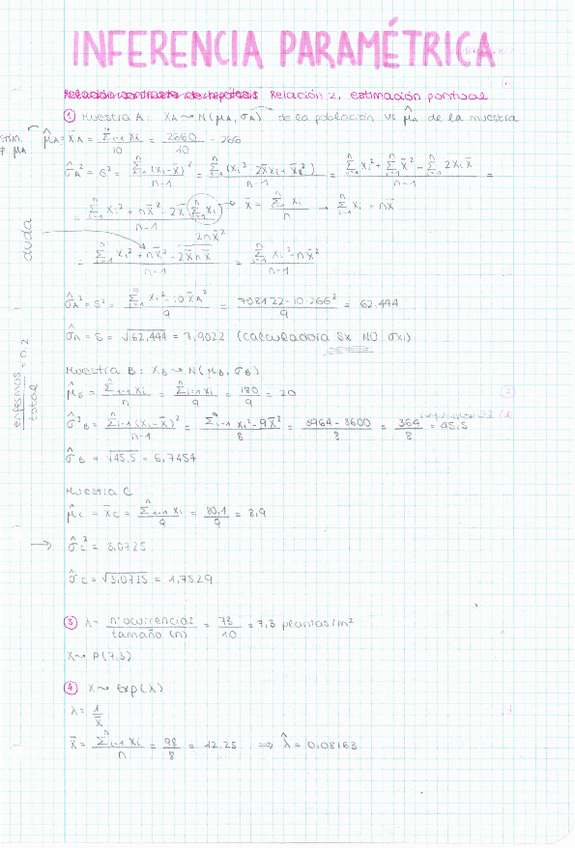 INFERENCIA PARAMÉTRICA
Relación contraste de hipótesis Relación 2, estimación puntual
① Muestra A: X_A ~ N(μ_A, σ_A) de la población vs μ̂_A de la muestra
μ̂_A = x̄_A = Σⁿᵢ₌₁ xᵢ / 10 = 2660 / 10 = 266
σ̂_A² = s² = Σⁿᵢ₌₁ (xᵢ - x̄)² / n-1 = Σⁿᵢ₌₁ (xᵢ² - 2x̄xᵢ + x̄²) / n-1 = Σⁿᵢ₌₁ xᵢ² + Σⁿᵢ₌₁ x̄² - Σⁿᵢ₌₁ 2xᵢx̄ / n-1 =
= Σⁿᵢ₌₁ xᵢ² + nx̄² - 2x̄ Σⁿᵢ₌₁ xᵢ / n-1 → x̄ = Σⁿᵢ₌₁ xᵢ / n → Σⁿᵢ₌₁ xᵢ = nx̄
duda
2nx̄²
= Σⁿᵢ₌₁ xᵢ² + nx̄² - 2x̄nx̄ / n-1 = Σⁿᵢ₌₁ xᵢ² - nx̄² / n-1
σ̂_A² = s² = Σⁿᵢ₌₁ xᵢ² - 10x̄_A² / 9 = 708122 - 10·266² / 9 = 62.444
σ̂_A = s = √62,444 = 7,9022 (calculadora Sx NO σx)
Muestra B: X_B ~ N(μ_B, σ_B)
μ̂_B = Σⁿᵢ₌₁ xᵢ / n = Σⁿᵢ₌₁ xᵢ / 9 = 180 / 9 = 20
σ̂²_B = Σⁿᵢ₌₁ (xᵢ - x̄)² / n-1 = Σⁿᵢ₌₁ xᵢ² - 9x̄² / 8 = 3964 - 3600 / 8 = 364 / 8 = 45,5
σ̂_B = √45,5 = 6,7454
enfermos = n.2
total
Muestra C
μ̂_C = x̄_C = Σⁿᵢ₌₁ xᵢ / 9 = 80,1 / 9 = 8,9
→ σ̂_C² = 3,0725
σ̂_C = √3,0725 = 1,7529
③ λ = nº ocurrencias / tamaño (n) = 73 / 10 = 7,3 plantas/m²
X ~ P(7,3)
④ X ~ Exp(λ)
λ = 1 / x̄
x̄ = Σⁿᵢ₌₁ xᵢ / n = 98 / 8 = 12,25 ⇒ λ̂ = 0,08163